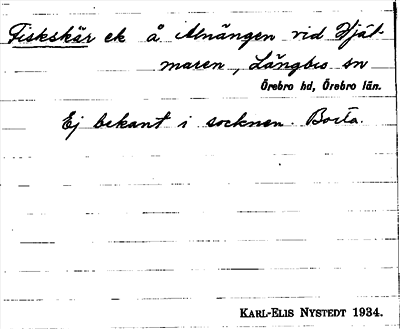 Fiskskär ek å Alnängen vid Hjäl-
maren, Längbro sn
Örebro hd, Örebro län.
Ej bekant i socknen. Borta.
KARL-ELIS NYSTEDT 1934.